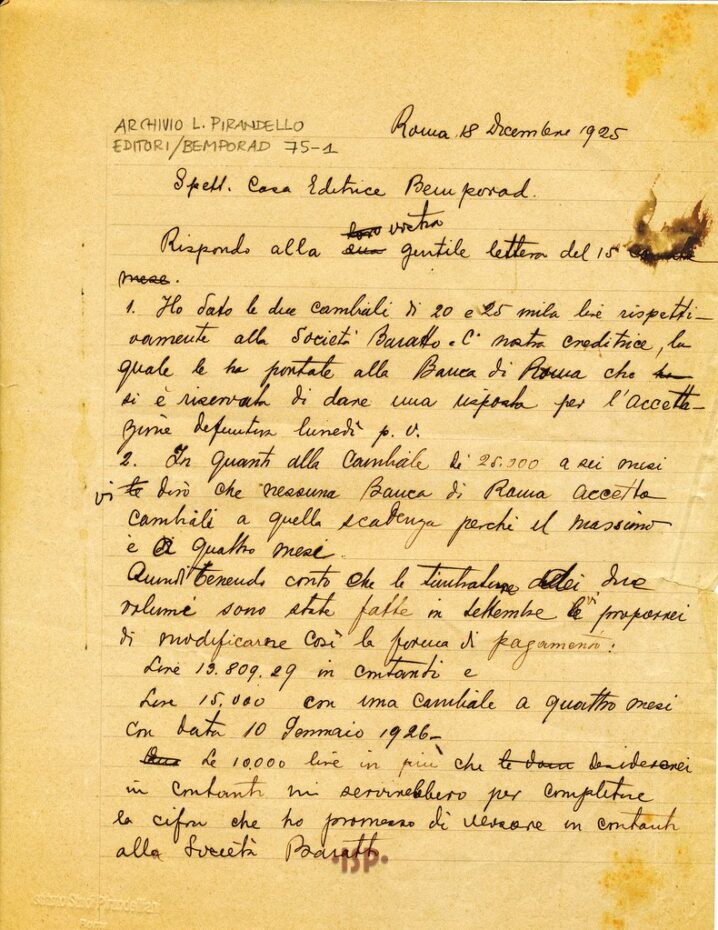 ARCHIVIO L. PIRANDELLO
EDITORI/BEMPORAD 75-1
Roma 18 Dicembre 1925
Spett. Casa Editrice Bemporad.
loro vostra
Rispondo alla sua gentile lettera del 15
mese.
1. Ho dato le due cambiali di 20 e 25 mila lire rispetti-
vamente alla Società Baratto e C.i nostra creditrice, la
quale le ha portate alla Banca di Roma che ha
si è riservata di dare una risposta per l'accetta-
zione definitiva lunedì p.v.
2. In quanti alla cambiale di 25.000 a sei mesi
vi le dirò che nessuna Banca di Roma accetta
cambiali a quella scadenza perchè il massimo
è a quattro mesi.
Quindi tenendo conto che le timbrature dei due
volumi sono state fatte in settembre le vi proporrei
di modificarne così la forma di pagamento:
Lire 13.809.29 in contanti e
Lire 15.000 con una cambiale a quattro mesi
con data 10 Gennaio 1926-
Le 10.000 lire in più che desidererei
in contanti mi servirebbero per completare
la cifra che ho promesso di versare in contanti
alla Società Baratto
·BP·